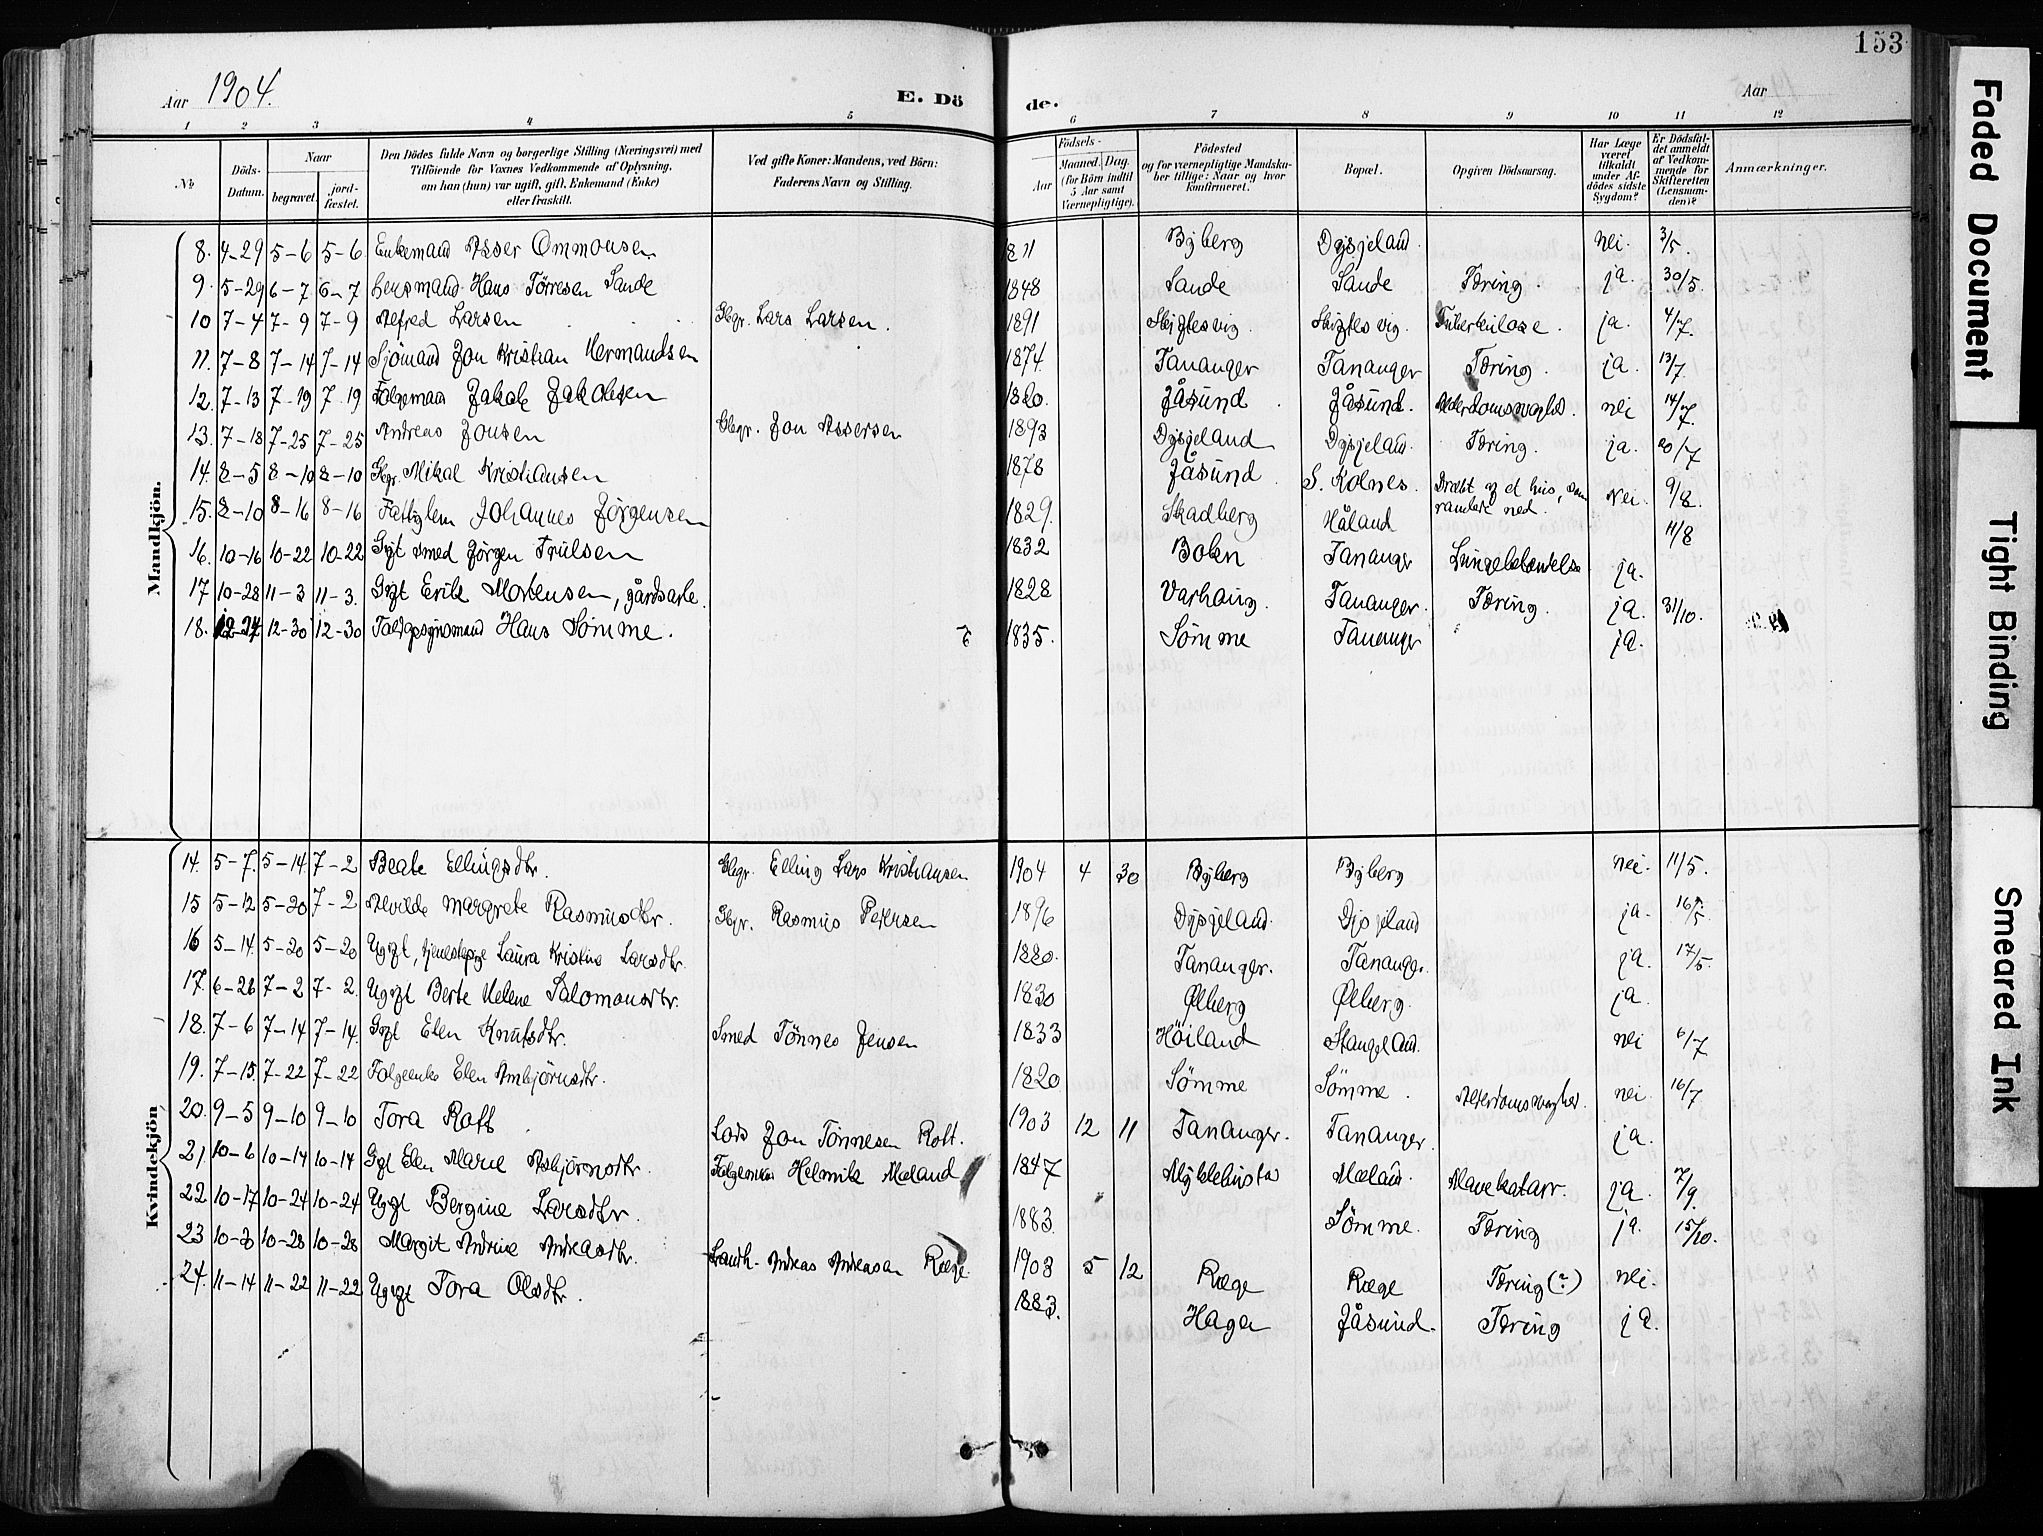 153
Aar 1904.
E. Döde.
Aar
1 2 3 4 5 6 7 8 9 10 11 12
№
Döds-Datum.
Naar
begravet.
jord-fæstet.
Den Dödes fulde Navn og borgerlige Stilling (Næringsvei) med
Tilföiende for Voxnes Vedkommende af Oplysning,
om han (hun) var ugift, gift, Enkemand (Enke)
eller fraskilt.
Ved gifte Koner: Mandens, ved Börn:
Faderens Navn og Stilling.
Födsels-
Aar
Maaned. Dag.
(for Börn indtil
5 Aar samt
Værnepligtige).
Födested
og for værnepligtige Mandska-
ber tillige: Naar og hvor
konfirmeret.
Bopæl.
Opgiven Dödsaarsag.
Har Læge
været
tilkaldt
under Af-
dödes sidste
Sygdom?
Er Dödsfal-
det anmeldt
af Vedkom-
mende for
Skifteretten
(Lensman-
den)?
Anmærkninger.
Mandkjön.
8. 4-29 5-6 5-6 Enkemand Asser Ommonsen 1811 Byberg Dysjeland. nei. 3/5.
9. 5-29 6-7 6-7 Lensmand Hans Törresen Sande 1848 Sande Sande Tæring. ja. 30/5.
10 7-4 7-9 7-9 Alfred Larsen Gbgr. Lars Larsen. 1891 Skiftesvig. Skiftesvig. Tuberkulose. ja. 4/7.
11. 7-8 7-14 7-14 Sjömand Jon Kristian Hermandsen 1874. Tananger Tananger Tæring. ja. 13/7.
12. 7-13 7-19 7-19 Folgemand Jakob Jakobsen 1820. Jåsund. Jåsund. Alderdomssvaghed. nei 14/7.
13. 7-18 7-25 7-25 Andreas Jonsen Gbgr. Jon Assersen 1893 Dysjeland Dysjeland. Tæring. ja. 20/7
14. 8-5 8-10 8-10 Gbgr. Mikal Kristiansen 1878 Jåsund S. Kolnes. Dræbt af et hus, som
ramlede ned. nei. 9/8.
15. 8-10 8-16 8-16 Fattiglem Johannes Jörgensen 1829. Skadberg Håland 11/8
16. 10-16 10-22 10-22 Gift smed Jörgen Trulsen 1832 Bokn Tananger Lungebetændelse ja.
17 10-28 11-3 11-3. Gift Erik Mortensen, gårdsarb. 1828 Varhaug. Tananger. Tæring. ja. 31/10.
18. 12-24 12-30 12-30 Hans Sömme. 1835. Sömme Tananger ja.
Kvindekjön
14. 5-7. 5-14. 7-2 Beate Ellingsdtr. Gbgr. Elling Lars Kristiansen 1904 4 30 Byberg Byberg nei. 11/5.
15 5-12 5-20 7-2 Alvilde Margrete Rasmusdtr. Gbgr. Rasmus Petersen 1896 Dysjeland. Dysjeland ja. 16/5.
16 5-14. 5-20 5-20 Ugift, tjenestepige Laura Kristine Larsdtr. 1880. Tananger. Tananger. ja. 17/5.
17. 6-26 7-2 7-2. Ugift Berte Helene Salomonsdtr. 1830 Ølberg Ølberg. ja.
18. 7-6 7-14 7-14. Gift Elen Knutsdtr. Smed Tönnes Jensen 1833 Höiland Stangeland. nei 6/7
19. 7-15. 7-22 7-22 Folgeenke Elen Ambjörnsdtr. 1820 Sömme Sömme. Alderdomssvaghed. nei 16/7
20. 9-5 9-10 9-10 Tora Rott. Lods Jon Tönnesen Rott. 1903 12 11 Tananger. Tananger. ja.
21. 10-6 10-14 10-14 Gift Elen Marie Asbjörnsdtr. Folgemand Helmik Meland 1847 Myklebust Meland. Mavekatarr. ja. 7/9.
22 10-17 10-24 10-24 Ugift Bergine Larsdtr. 1883. Sömme. Tæring ja. 15/10.
23 10-20 10-28 10-28 Margit Andrine Andreasdtr. Landh. Andreas Andreasen Ræge. 1903 5 12 Ræge Ræge Tæring (?) nei.
24. 11-14 11-22 11-22 Ugift Tora Olsdtr. 1883. Haga Jåsund. Tæring ja.
Faded Document
Tight Binding
Smeared Ink